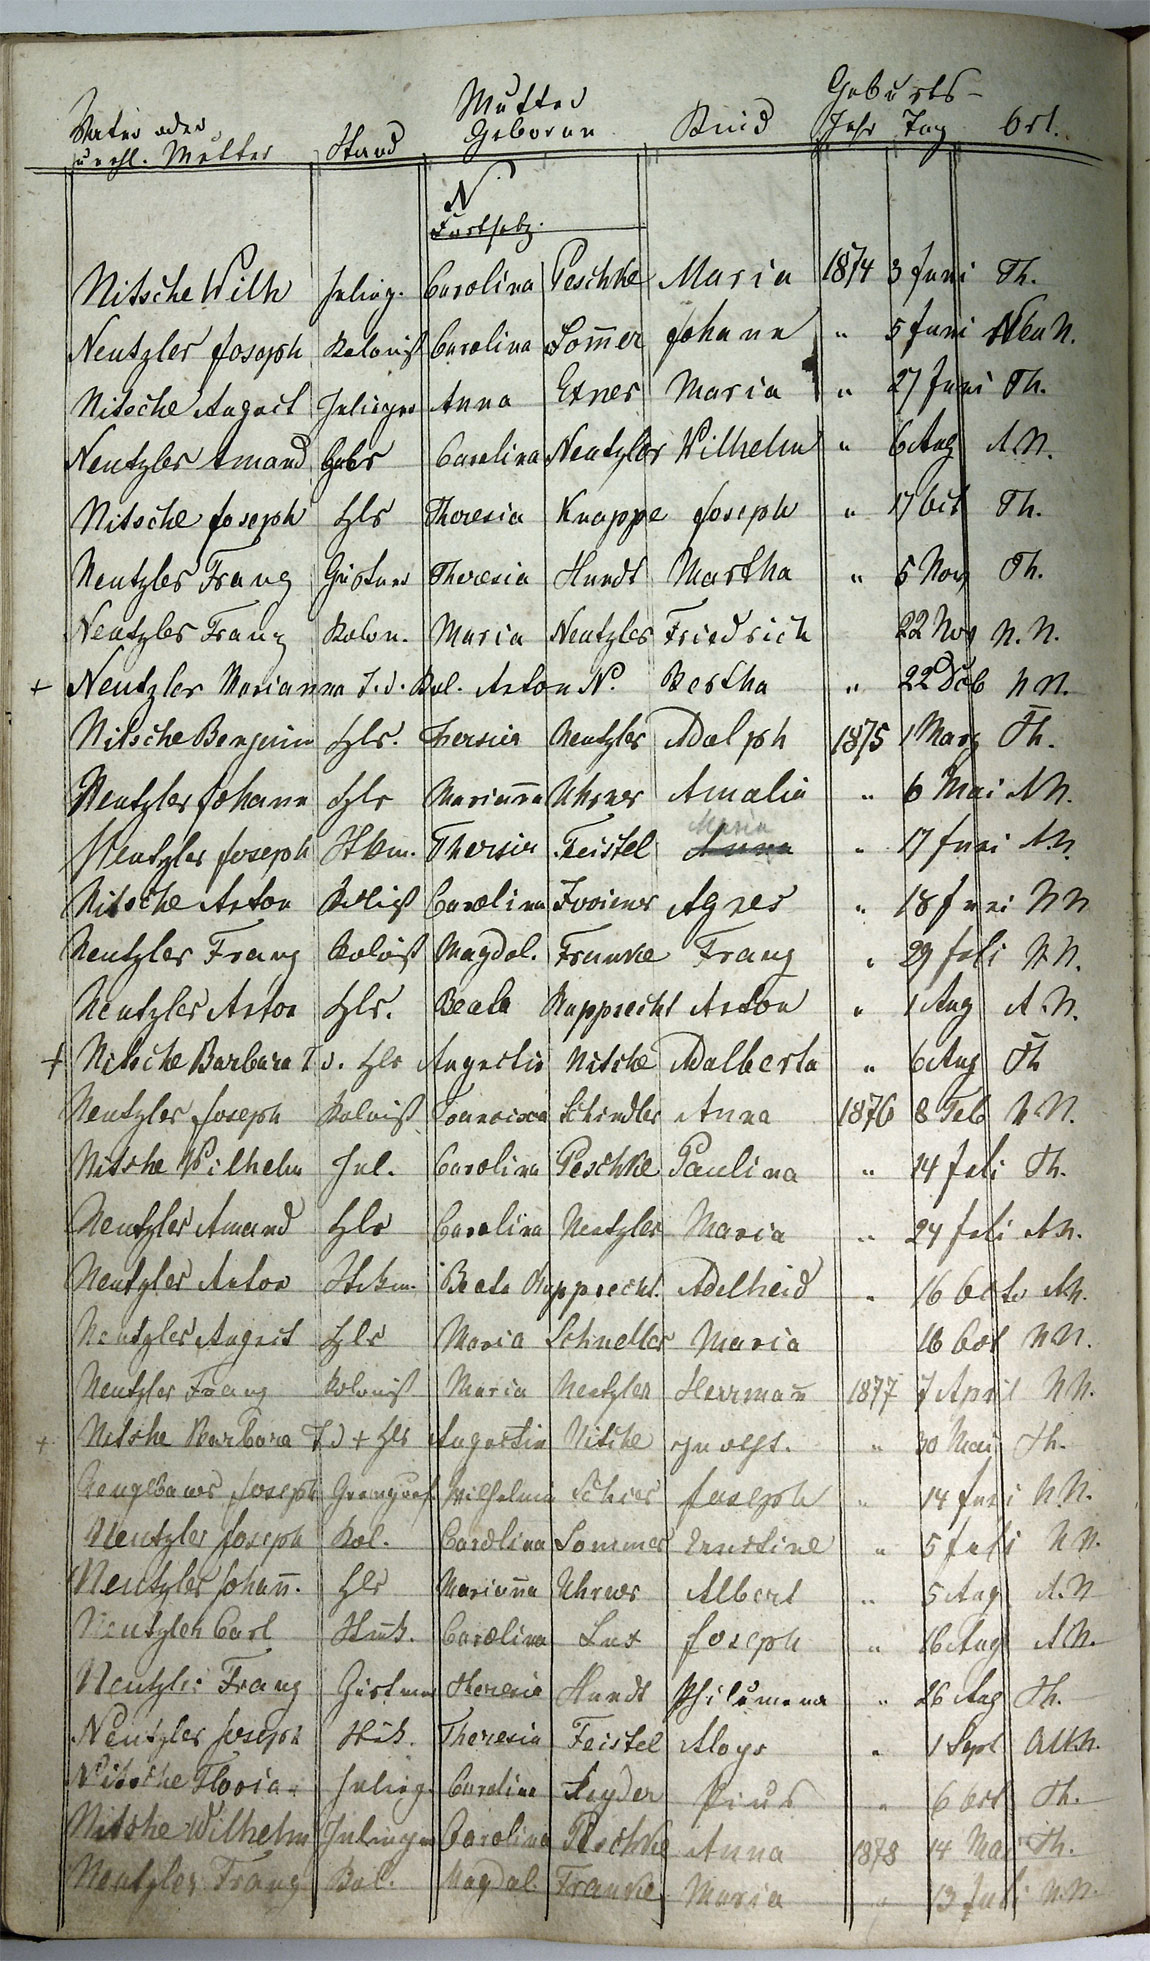 Geburts-
Mutter
Vater oder Stand Geboren Kind Jahr Tag Ort.
unehl. Mutter
N.
Fortsetz.
Nitsche Wilh Carolina Peschke Maria 1874 3 Juni Th.
Neutzler Joseph Kolonist Carolina Sommer Johann " 5 Juni Neu N.
Nitsche August Anna Exner Maria " 27 Juni Th.
Neutzler Amand Carolina Neutzler Wilhelm " 6 Aug A.N.
Nitsche Joseph Hls Theresia Knappe Joseph " 17 Oct Th.
Neutzler Franz Theresia Hundt Martha " 5 Nov Th.
Neutzler Franz Kolon. Maria Neutzler Friedrich 22 Nov N.N.
+ Neutzler Marianna T. d. Kol. Anton N. Bertha " 22 Dcb N N.
Nitsche Benjamin Hls. Thersia Neutzler Adolph 1875 1 Marz Th.
Neutzler Johann Hls Marianna Uhrner Amalia " 6 Mai A N.
Maria
Neutzler Joseph Thersia Feistel Anna " 17 Juni A.N.
Nitsche Anton Carolina Agnes " 18 Juni N N
Neutzler Franz Kolonist Magdal. Franke Franz " 29 Juli N.N.
Neutzler Anton Hls. Beata Rupprecht Anton " 1 Aug A.N.
+ Nitsche Barbara T. d. Hls Augustin Nitsche Adalberta " 6 Aug Th
Neutzler Joseph Kolonist Francisca Schindler Anna 1876 8 Feb N N.
Nitshe Wilhelm Jnl. Carolina Peschke Paulina " 14 Juli Th.
Neutzler Amand Hls Carolina Neutzler Maria " 24 Juli A N.
Neutzler Anton Beata Rupprecht. Adelheid " 16 Octo AN.
Neutzler August Hls Maria Schneller Maria 16 Oct N N.
Neutzler Franz Kolonist Maria Neutzler Herrman 1877 7 April N N.
+ Nitshe Barbara T d + Hls Augustin Nitsche " 30 Mai Th.
Joseph Wilhelmin Joseph " 14 Juni N.N.
Neutzler Joseph Kol. Carolina Sommer Ernstine " 5 Juli N N.
Neutzler Johann. Hls Marianna Uhrner Albert " 5 Aug A.N
Neutzler Carl Carolina Lux Joseph " 16 Aug A N.
Neutzler Franz Theresia Hundt Philumena " 26 Aug Th.
Neutzler Joseph Theresia Feistel Aloys " 1 Sept Alt N.
Nitsche Floria. Carolina Heyder Pius " 6 Oct Th.
Nitshe Wilhelm Carolina Peschke Anna 1878 14 Mai Th.
Neutzler Franz Kol. Magdal Franke Maria " 13 Juli N.N.